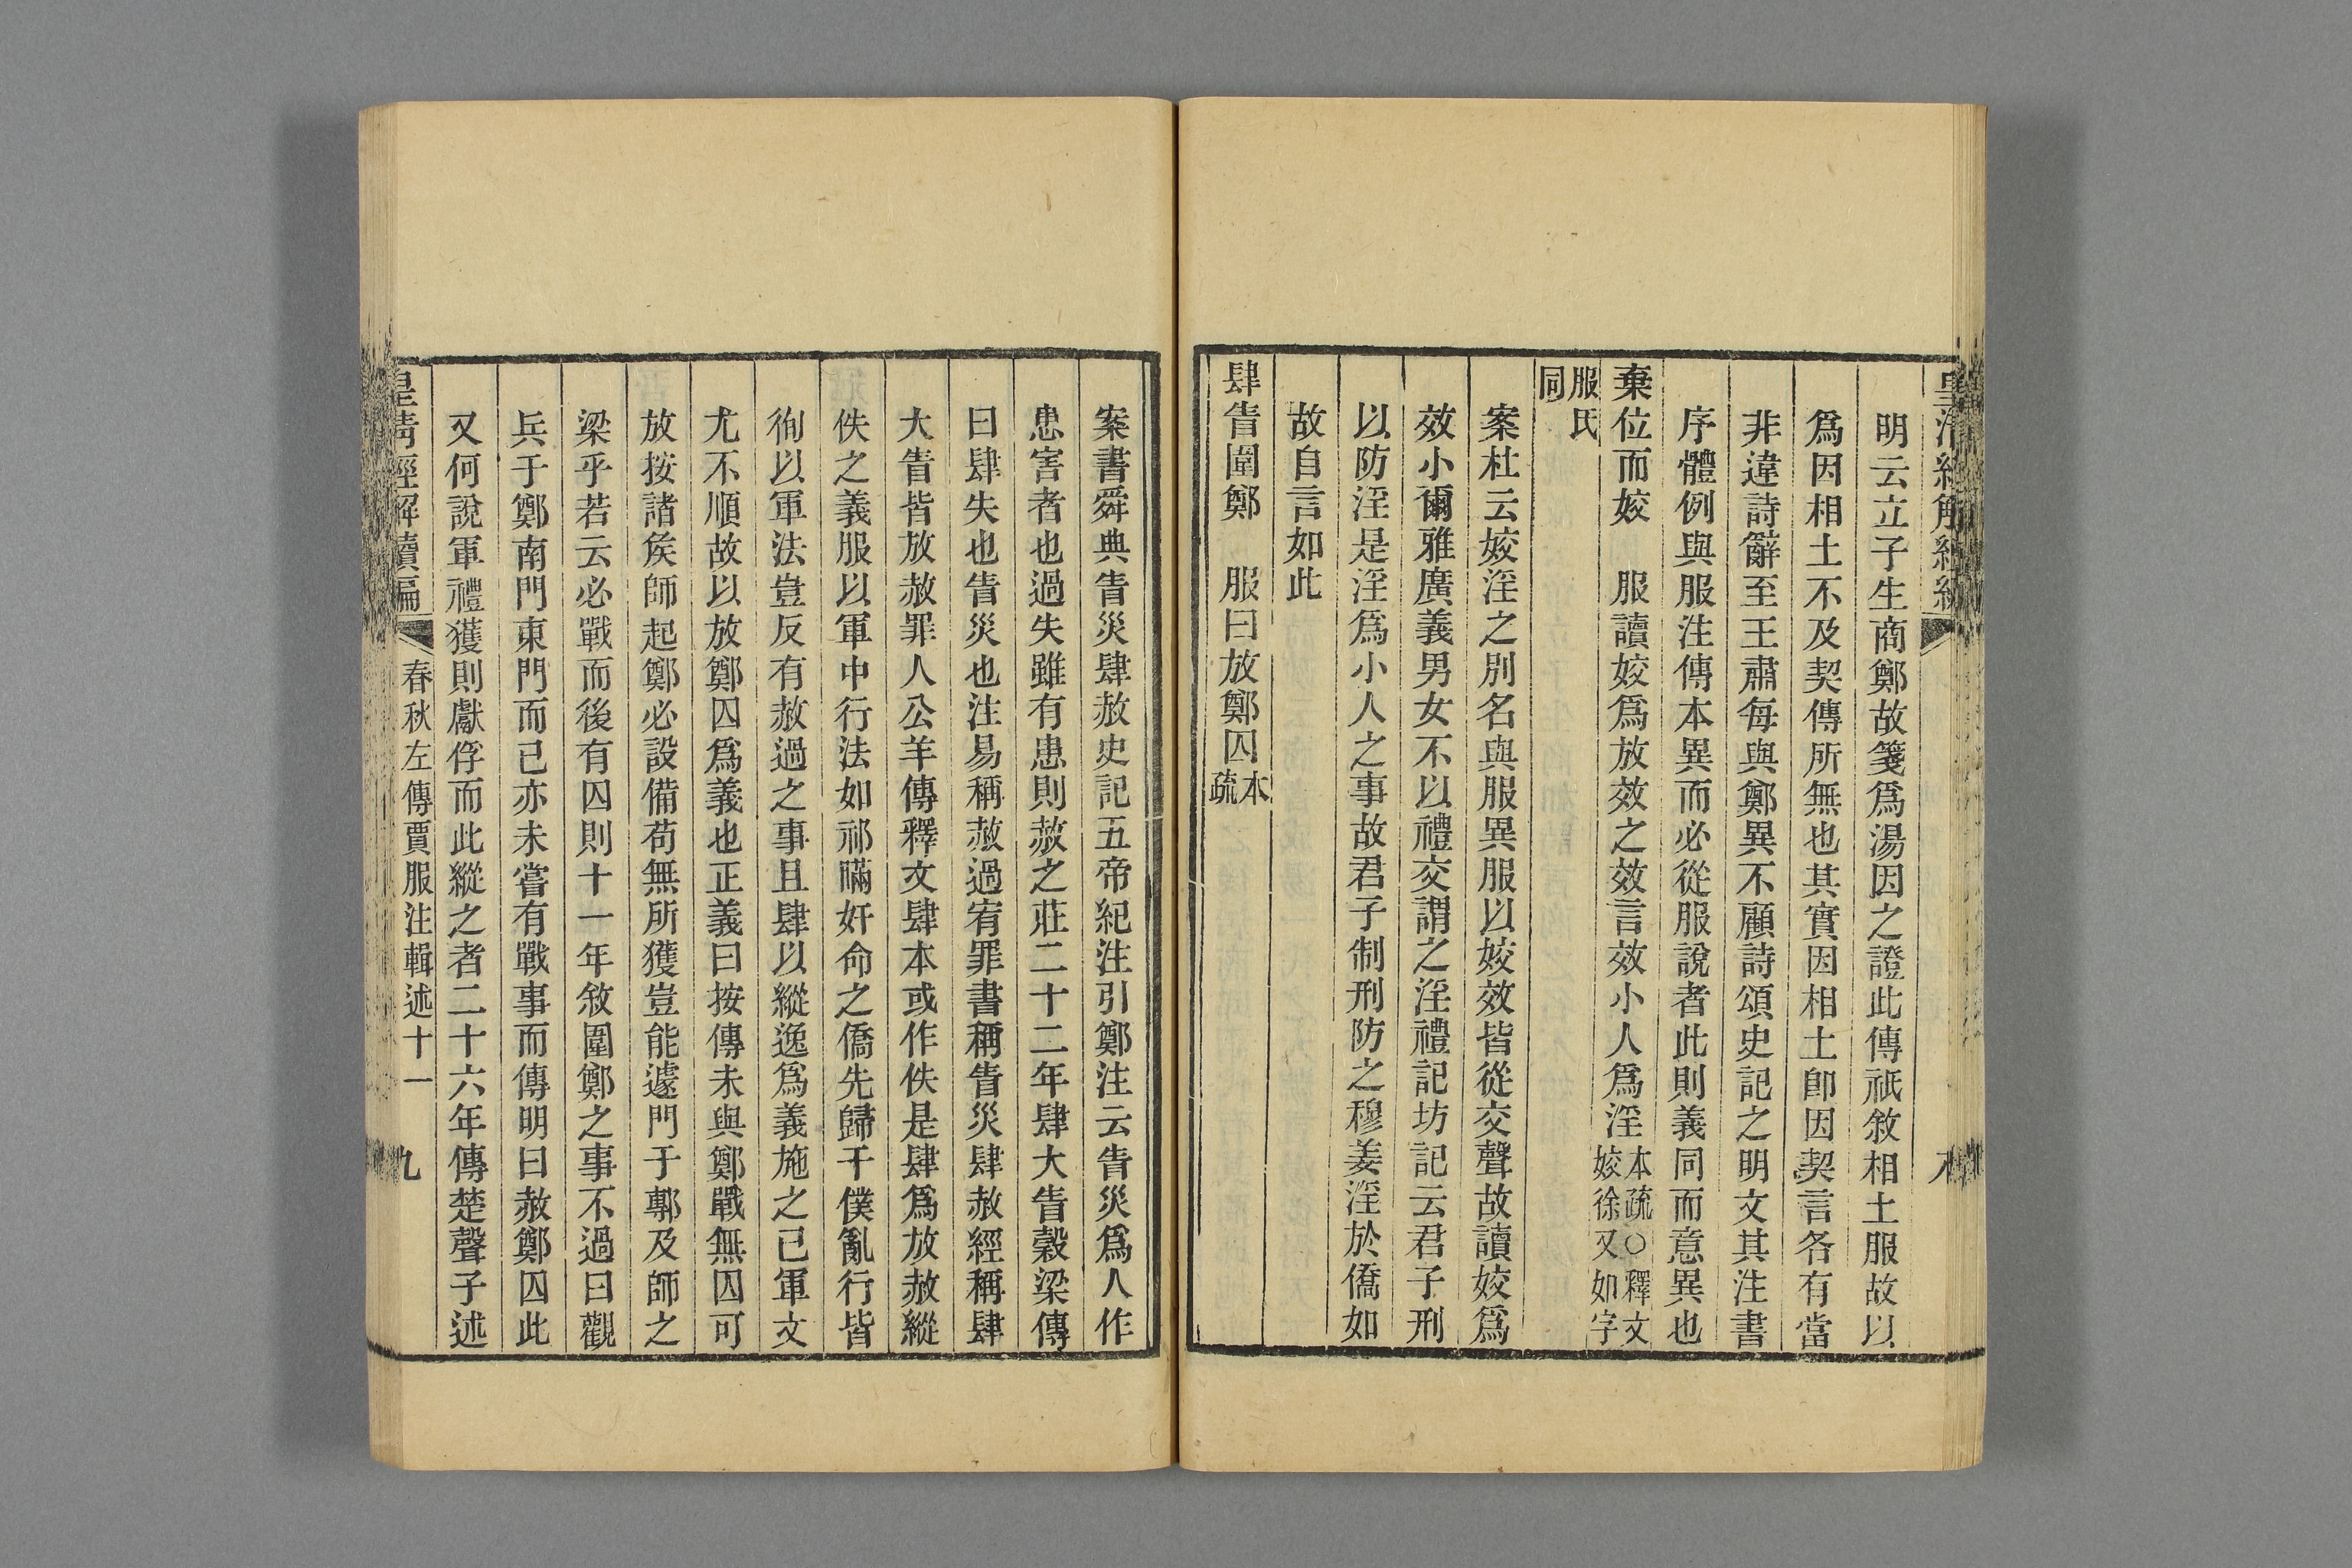 明云立子生商鄭故箋爲湯因之證此傳祇敘相土服故以
爲因相土不及契傳所無也其實因相土卽因契言各有當
非違詩辭至王肅每與鄭異不顧詩頌史記之明文其注書
序體例與服注傳本異而必從服說者此則義同而意異也
棄位而姣　服讀姣爲放效之效言效小人爲淫本疏○釋文
姣徐又如字
服氏
同
案杜云姣淫之別名與服異服以姣效皆從交聲故讀姣爲
效小爾雅廣義男女不以禮交謂之淫禮記坊記云君子刑
以防淫是淫爲小人之事故君子制刑防之穆姜淫於僑如
故自言如此
肆眚圍鄭　服曰放鄭囚本
疏
案書舜典眚災肆赦史記五帝紀注引鄭注云眚災爲人作
患害者也過失雖有患則赦之莊二十二年肆大眚穀梁傳
曰肆失也眚災也注易稱赦過宥罪書稱眚災肆赦經稱肆
大眚皆放赦罪人公羊傳釋文肆本或作佚是肆爲放赦縱
佚之義服以軍中行法如祁瞞奸命之僑先歸干僕亂行皆
徇以軍法豈反有赦過之事且肆以縱逸爲義施之己軍文
尤不順故以放鄭囚爲義也正義曰按傳未與鄭戰無囚可
放按諸侯師起鄭必設備苟無所獲豈能遽門于鄟及師之
梁乎若云必戰而後有囚則十一年敘圍鄭之事不過曰觀
兵于鄭南門東門而已亦未嘗有戰事而傳明曰赦鄭囚此
又何說軍禮獲則獻俘而此縱之者二十六年傳楚聲子述
皇清經解續編　春秋左傳賈服注輯述十一　九